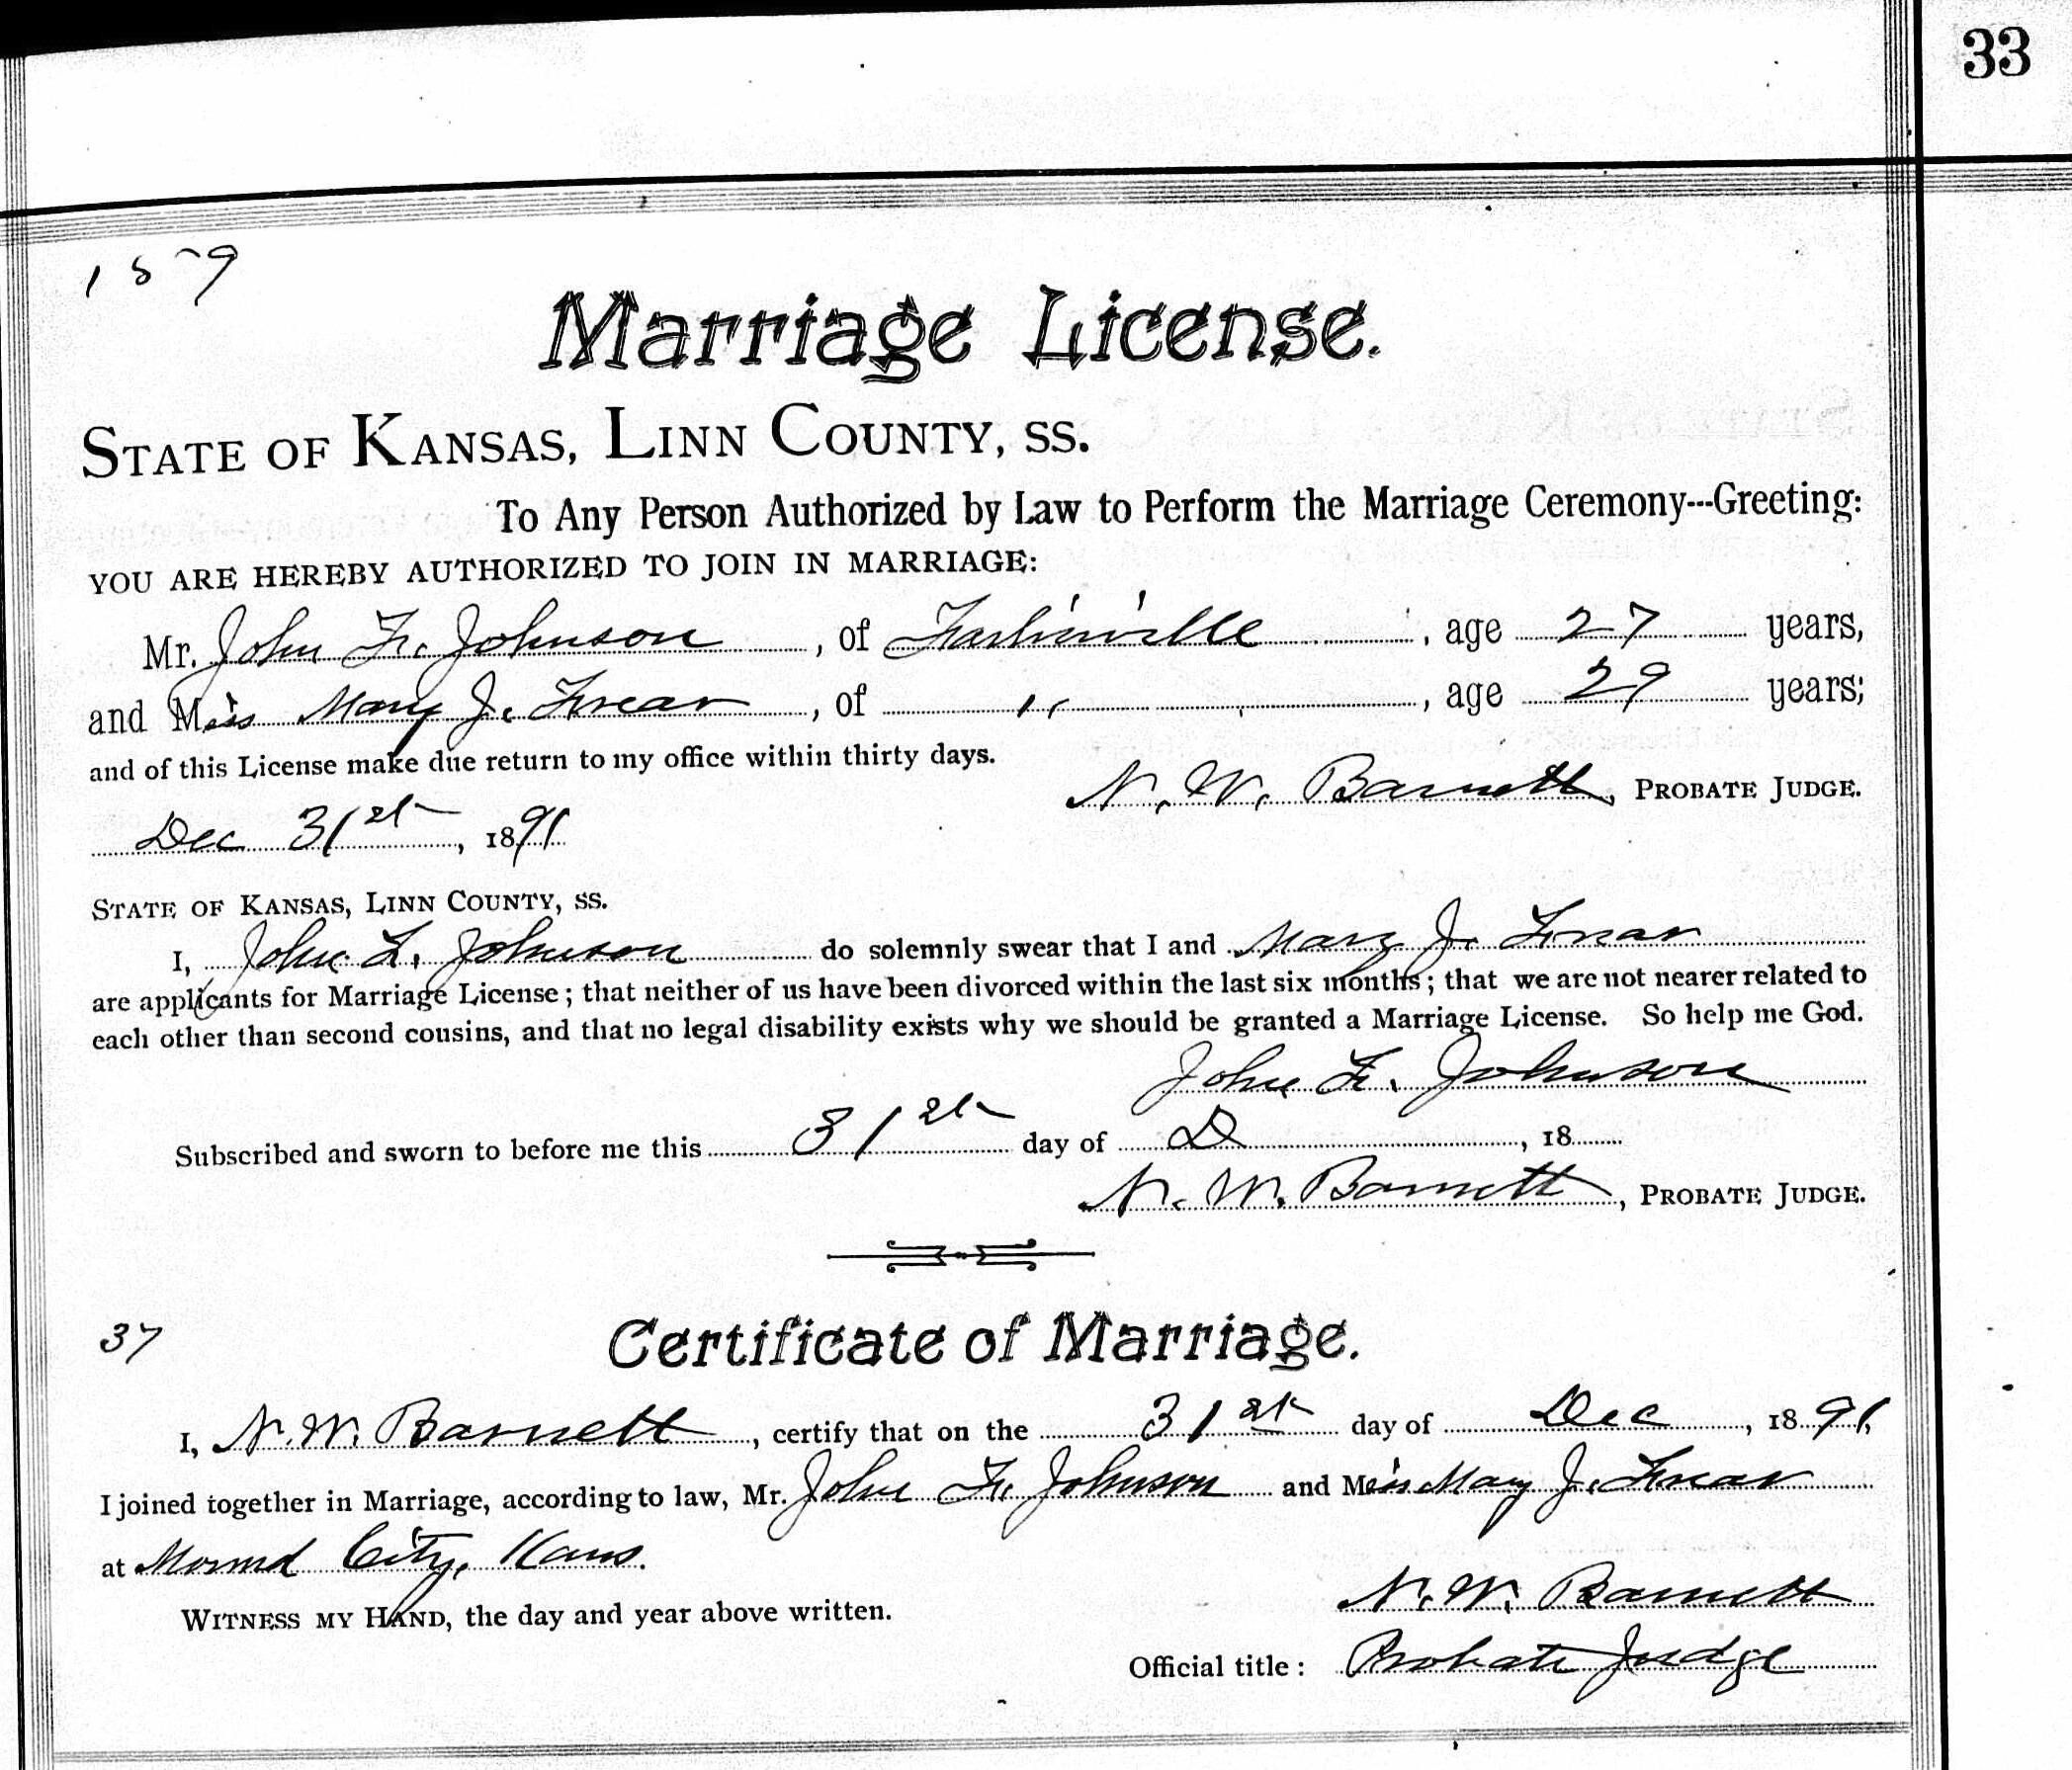 33
1579
Marriage License.
STATE OF KANSAS, LINN COUNTY, SS.
To Any Person Authorized by Law to Perform the Marriage Ceremony---Greeting:
YOU ARE HEREBY AUTHORIZED TO JOIN IN MARRIAGE:
Mr. John F. Johnson, of Farlinville, age 27 years,
and Miss Mary J. , of ", age 29 years;
and of this License make due return to my office within thirty days.
N. W. Barnett, PROBATE JUDGE.
Dec 31st, 1891
STATE OF KANSAS, LINN COUNTY, SS.
I, John F. Johnson do solemnly swear that I and Mary J.
are applicants for Marriage License; that neither of us have been divorced within the last six months; that we are not nearer related to
each other than second cousins, and that no legal disability exists why we should be granted a Marriage License. So help me God.
John F. Johnson
Subscribed and sworn to before me this 31st day of D, 18
N. W. Barnett, PROBATE JUDGE.
37
Certificate of Marriage.
I, N. W. Barnett, certify that on the 31st day of Dec, 1891,
I joined together in Marriage, according to law, Mr. John F. Johnson and Miss Mary J.
at Mound City, Kans.
N. W. Barnett
WITNESS MY HAND, the day and year above written.
Official title: Probate Judge